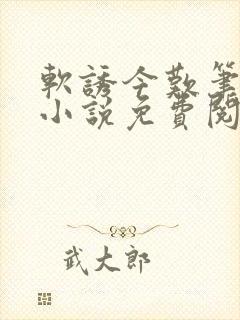 軟誘今歡筆
小說免費閱
武大郎